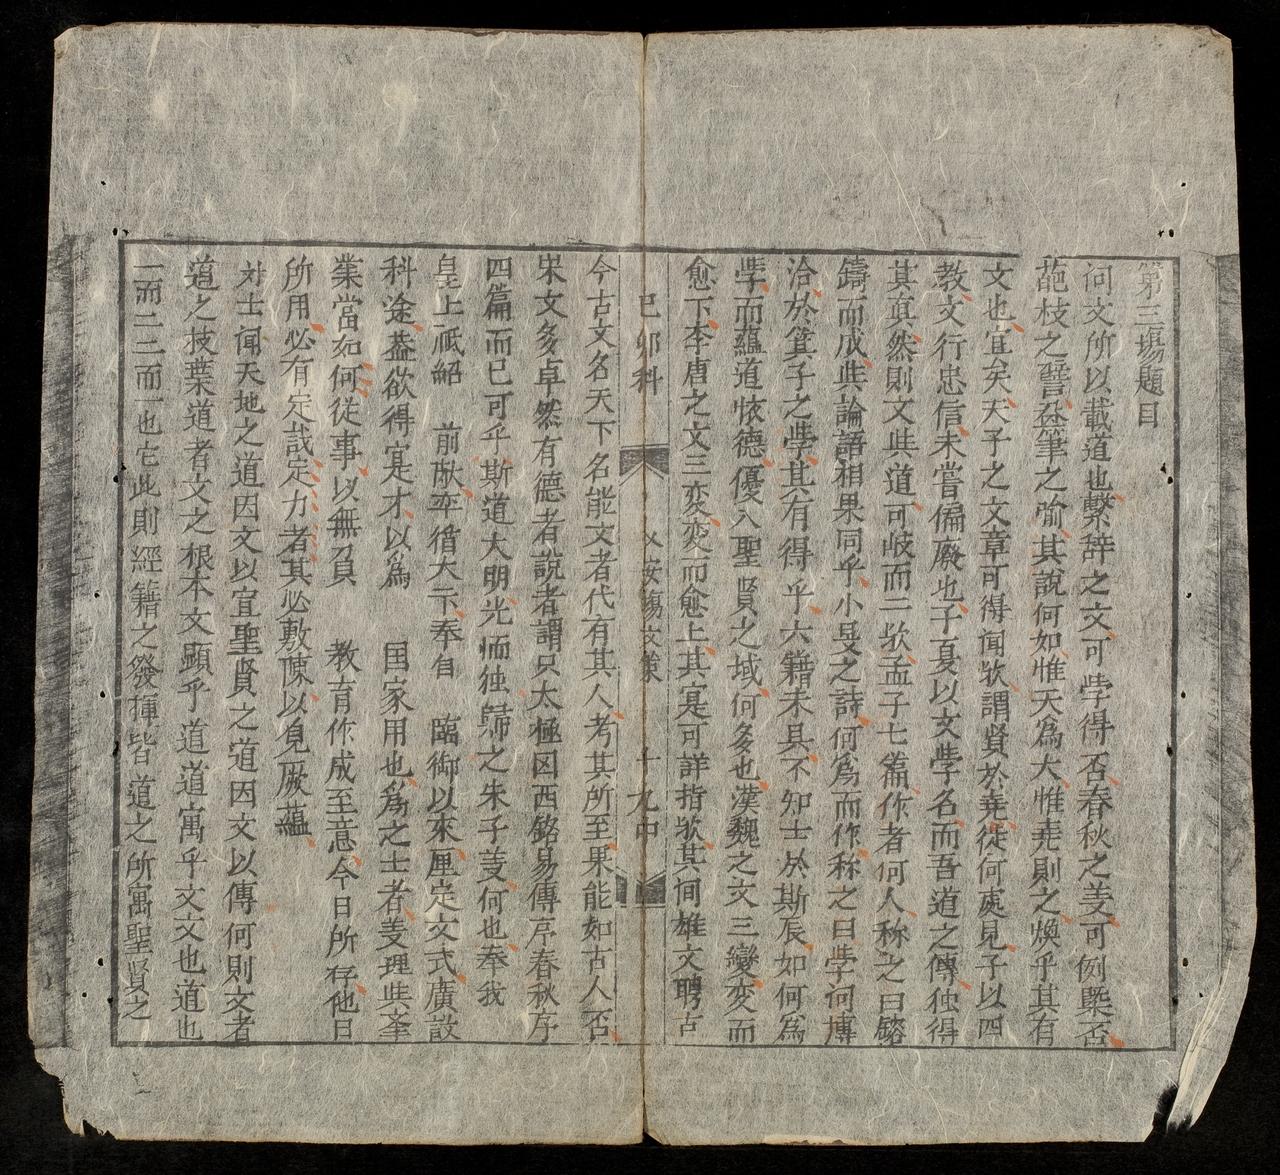 第三場題目
問文所以載道也繫辞之文可孛得否春秋之美可例槩否
葩枝之譬𤇆筆之喻其說何如惟天為大惟堯則之煥乎其有
文也宜矣夫子之文章可得闻欤謂賢於堯徒何處見子以四
教文行忠信未嘗偏廢也子夏以文孛名而吾道之傳独得
其真然則文與道可岐而二欤孟子七篇作者何人称之曰鎔
鑄而成與論語相果同乎小旻之詩何為而作称之曰孛问博
洽於箕子之孛其有得乎六籍未具不知士於斯辰如何為
孛而蘊道怀德優入聖賢之域何多也漢魏之文三變变而
愈下李唐之文三变变而愈上其寔可詳指欤其间雄文聘古
己卯科 乂安塲文策 十九中
今古文名天下名能文者代有其人考其所至果能如古人否
宋文多卓然有德者說者謂只太極图西銘易傳序春秋序
四篇而已可乎斯道大明光而独歸之朱子美何也奉我
皇上祗紹 前猷率循大卞奉自 臨御以來厘定文式廣設
科途盖欲得寔才以為 国家用也為之士者美理與文
業當如何從事以無負 教育作成至意今日所存他日
所用必有定哉定力者其必敷陳以覓厥蘊
对士闻天地之道因文以宣聖賢之道因文以傳何則文者
道之枝葉道者文之根本文顯乎道道寓乎文文也道也
一而二二而一也它此則經籍之發揮皆道之所寓聖賢之